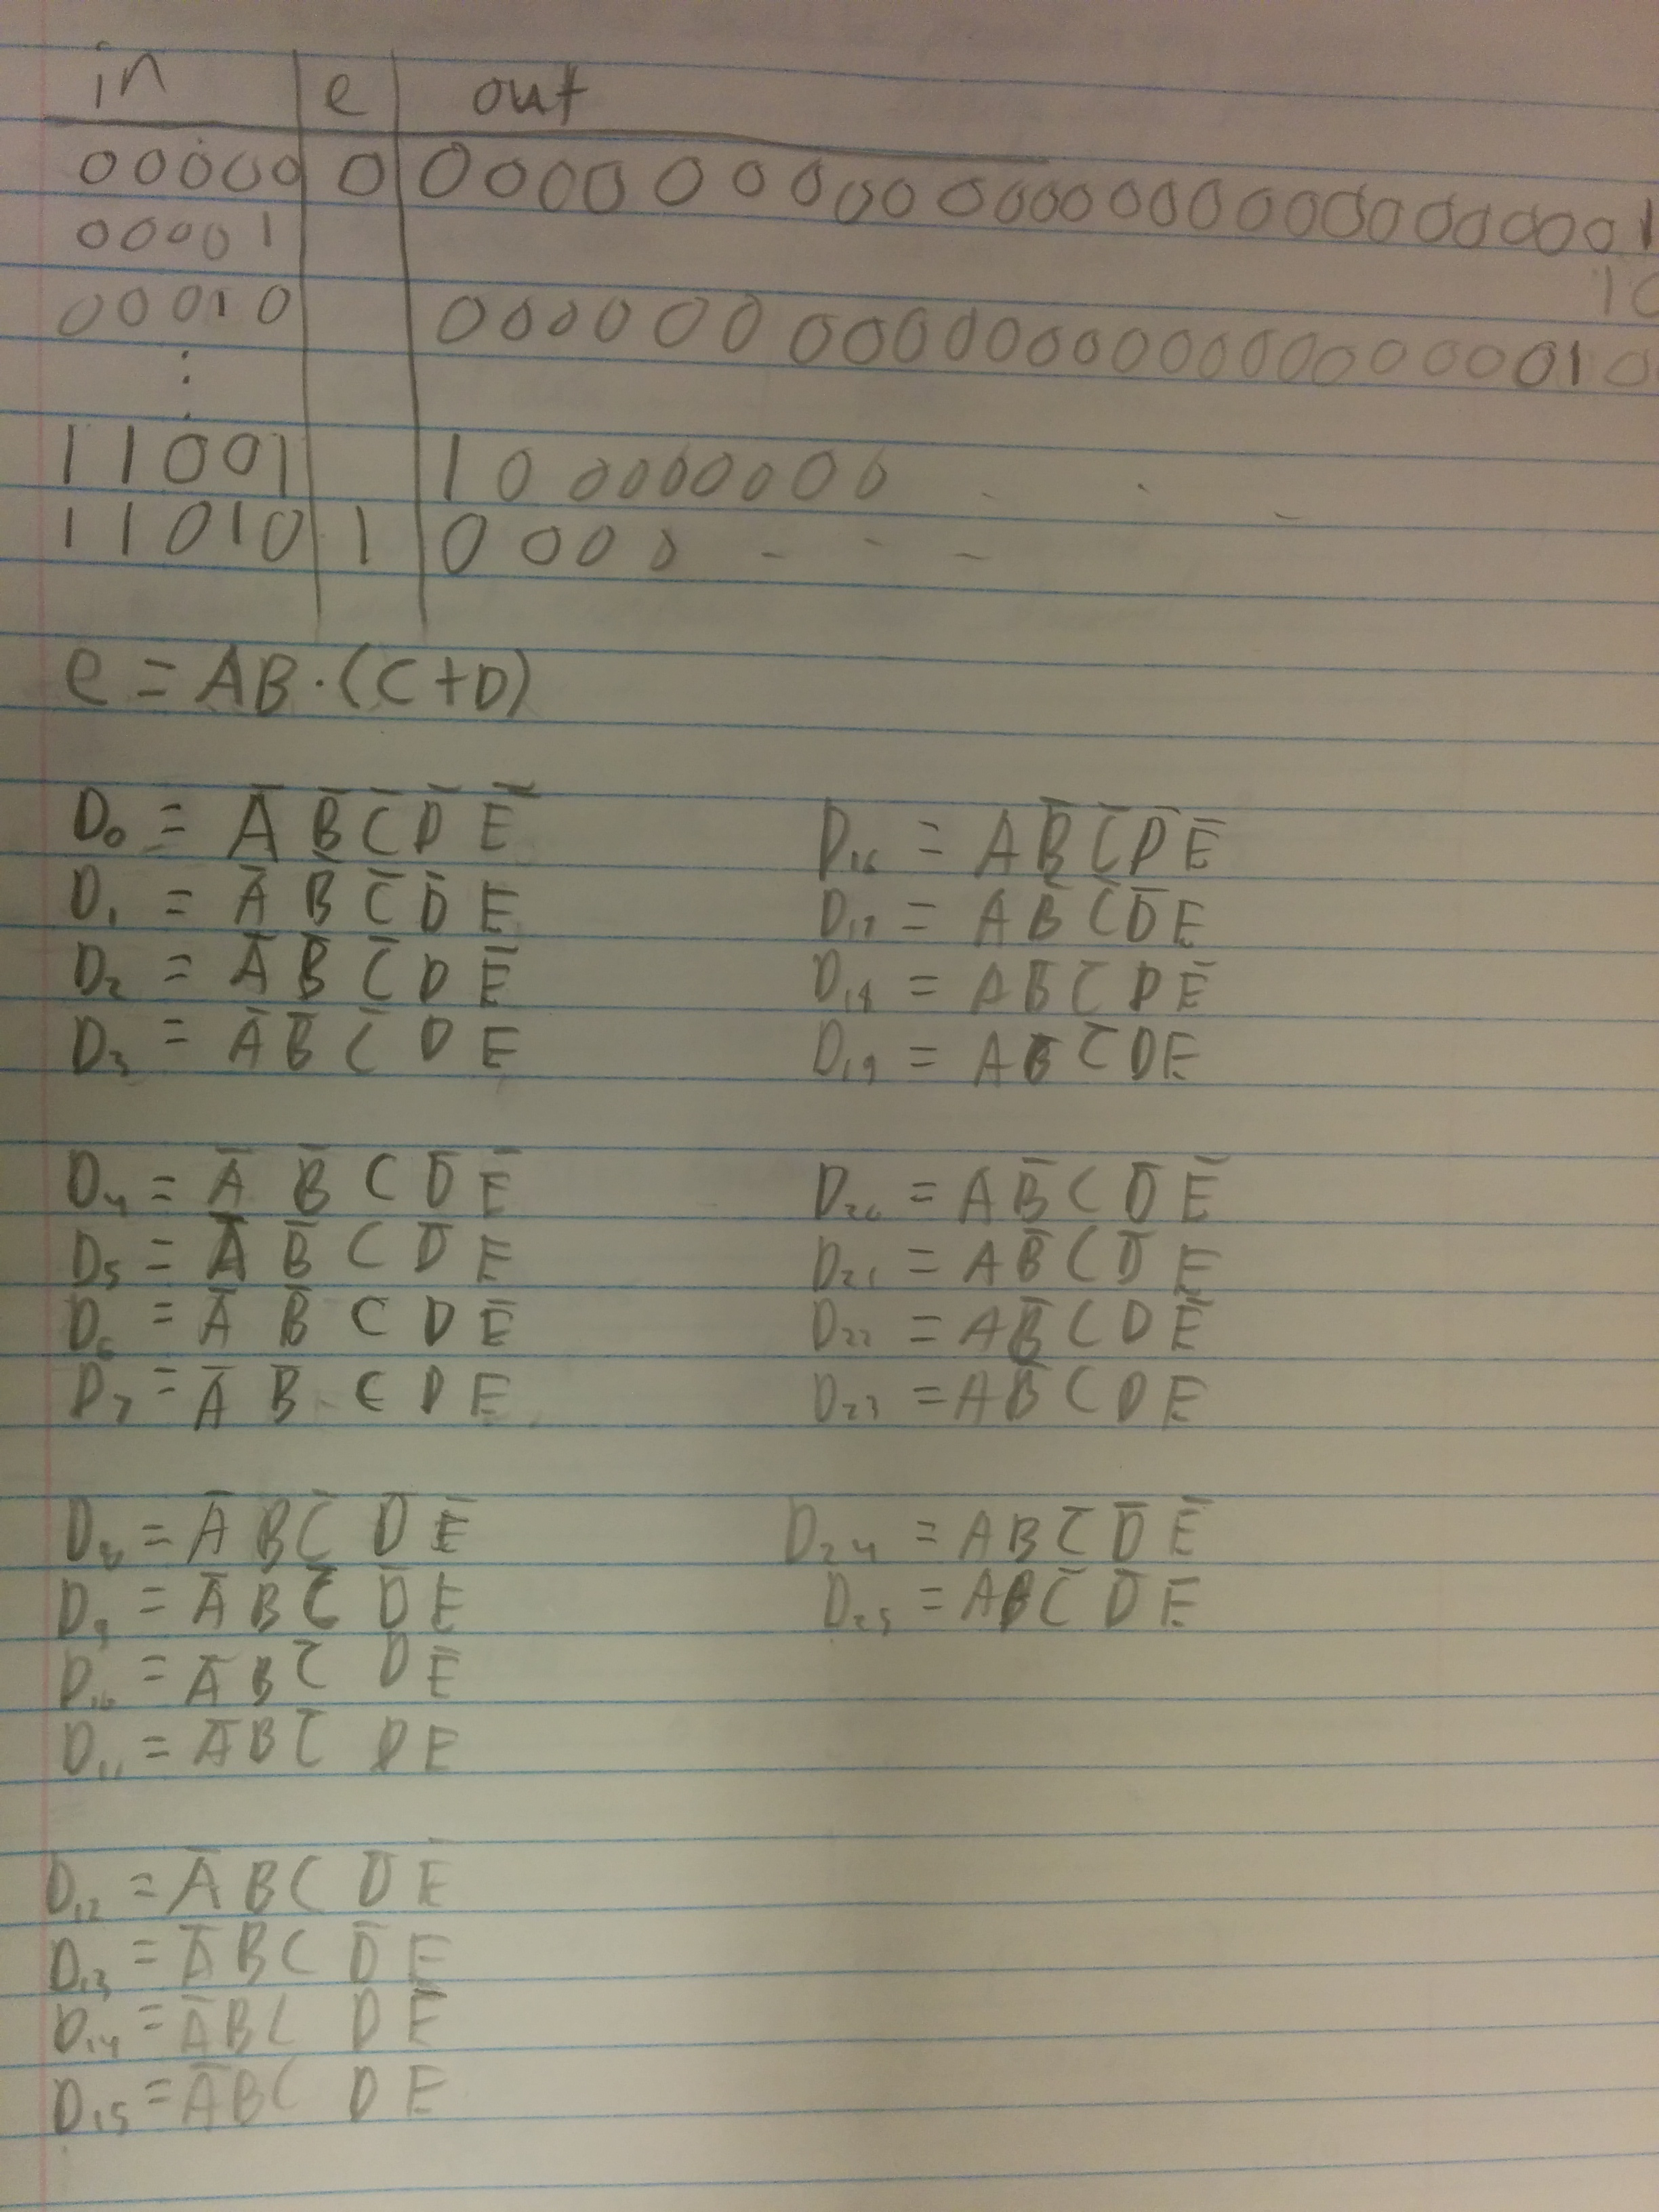 in e out
00000 0 0000000000000000000000001
00001 10
00010 000000000000000000000010
⋮
11001 100000000 . . -
11010 1 0000 - - -
e = AB·(C+D)
D₀ = A̅ B̅ C̅ D̅ E̅
D₁ = A̅ B̅ C̅ D̅ E
D₂ = A̅ B̅ C̅ D E̅
D₃ = A̅ B̅ C̅ D E
D₄ = A̅ B̅ C D̅ E̅
D₅ = A̅ B̅ C D̅ E
D₆ = A̅ B̅ C D E̅
D₇ = A̅ B̅ C D E
D₈ = A̅ B C̅ D̅ E̅
D₉ = A̅ B C̅ D̅ E
D₁₀ = A̅ B C̅ D E̅
D₁₁ = A̅ B C̅ D E
D₁₂ = A̅ B C D̅ E̅
D₁₃ = A̅ B C D̅ E
D₁₄ = A̅ B C D E̅
D₁₅ = A̅ B C D E
D₁₆ = A B̅ C̅ D̅ E̅
D₁₇ = A B̅ C̅ D̅ E
D₁₈ = A B̅ C̅ D E̅
D₁₉ = A B̅ C̅ D E
D₂₀ = A B̅ C D̅ E̅
D₂₁ = A B̅ C D̅ E
D₂₂ = A B̅ C D E̅
D₂₃ = A B̅ C D E
D₂₄ = A B C̅ D̅ E̅
D₂₅ = A B C̅ D̅ E